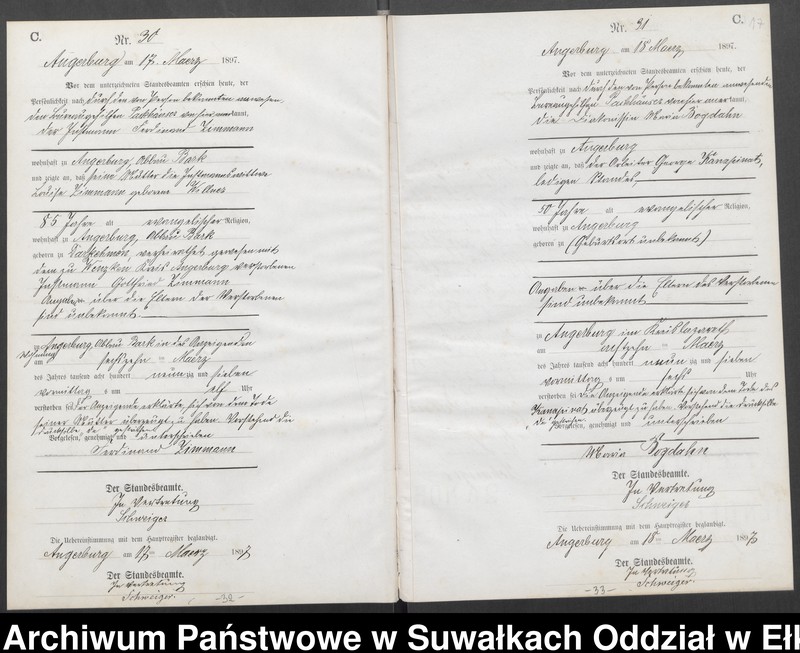 C.
Nr. 30
Angerburg am 17. Maerz 1897.
Vor dem unterzeichneten Standesbeamten erschien heute, der
Persönlichkeit nach durch den von Person bekannten anwesen-
den Bureaugehilfen anerkannt,
der Instmann Ferdinand Zimmann
wohnhaft zu Angerburg, Abbau Bark
und zeigte an, daß seine Mutter die Instmannswittwe
Louise Zimmann geborene
85 Jahre alt evangelischer Religion,
wohnhaft zu Angerburg, Abbau Bark
geboren zu Darkehmen, verheirathet gewesen mit
dem zu Wenzken Kreis Angerburg verstorbenen
Instmann Gottfried Zimmann
Angaben über die Eltern der Verstorbenen
sind unbekannt
zu Angerburg, Abbau Bark in des Anzeigenden
Wohnung
am sechszehn ten Maerz
des Jahres tausend acht hundert neunzig und sieben
Vormittag s um elf Uhr
verstorben sei. Der Anzeigende erklärte, sich von dem Tode
seiner Mutter überzeugt zu haben. Vorstehend die
Druckselbe gestrichen
Vorgelesen, genehmigt und unterschrieben
Ferdinand Zimmann
Der Standesbeamte.
In Vertretung
Schweiger
Die Uebereinstimmung mit dem Hauptregister beglaubigt.
Angerburg am 17ten Maerz 1897
Der Standesbeamte.
In Vertretung
Schweiger.
-32-
C.
17
Nr. 31
Angerburg am 18 Maerz 1897.
Vor dem unterzeichneten Standesbeamten erschien heute, der
Persönlichkeit nach durch den von Person bekannten anwesenden
Bureaugehilfen anerkannt,
die Diakonissin Maria Bogdahn
wohnhaft zu Angerburg
und zeigte an, daß der Arbeiter George Kanapinat,
ledigen Standes,
50 Jahre alt evangelischer Religion,
wohnhaft zu Angerburg
geboren zu (Geburtsort unbekannt)
Angaben über die Eltern des Verstorbenen
sind unbekannt
zu Angerburg im Kreislazareth
am ten Maerz
des Jahres tausend acht hundert neun zig und sieben
Vormittag s um sechs Uhr
verstorben sei. Die Anzeigende erklärte sich von dem Tode des
Kanapinat überzeugt zu haben. Vorstehend die Druckselbe
Vorgelesen, genehmigt und unterschrieben
Maria Bogdahn
Der Standesbeamte.
In Vertretung
Schweiger
Die Uebereinstimmung mit dem Hauptregister beglaubigt.
Angerburg am 18ten Maerz 1897
Der Standesbeamte.
In Vertretung
Schweiger.
-33-
Archiwum Państwowe w Suwałkach Oddział w Ełk